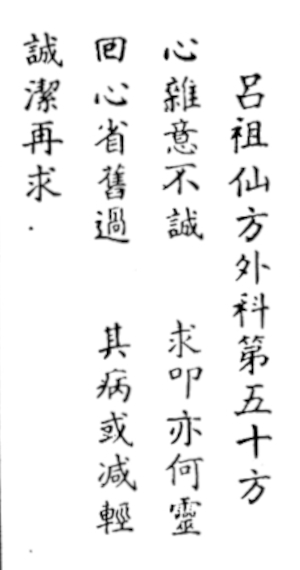 呂祖仙方外科第五十方
心雜意不誠　求叩亦何靈
回心省舊過　其病或減輕
誠潔再求.